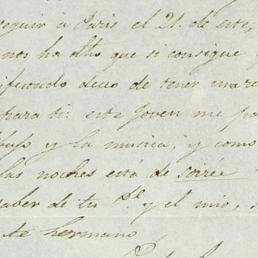 seguir á Paris el 21. de este,
nos ha dho que si consigue
deseo de tener una re
para ti: este joven me pa
y la musica, y como
las noches está de soirée
saber de tu pe. y el mio,
te hermano